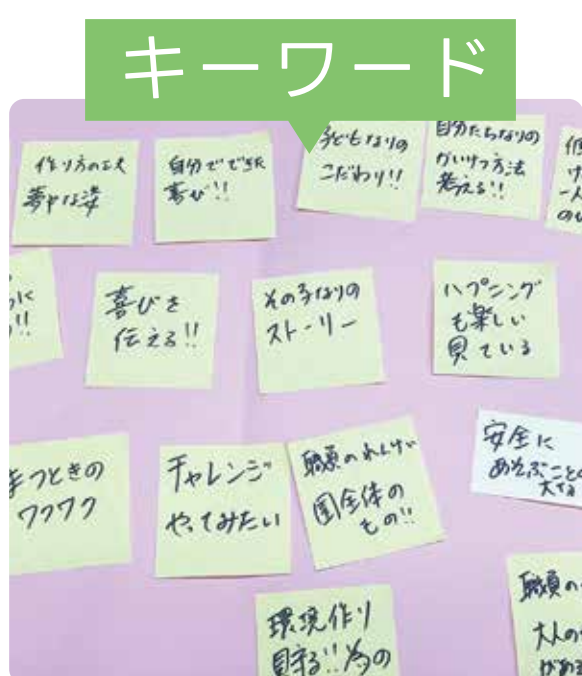 キーワード
作り方の工夫
夢中な姿
自分でできた
喜び!!
子どもなりの
こだわり!!
自分たちなりの
かいけつ方法
考える!!
喜びを
伝える!!
その子なりの
ストーリー
ハプニング
も楽しい
見ている
まつときの
ワクワク
チャレンジ
やってみたい
職員のれんけい
園全体の
もの!!
安全に
あそぶこと
環境作り
見守る!!為の
職員の
大人の
がある